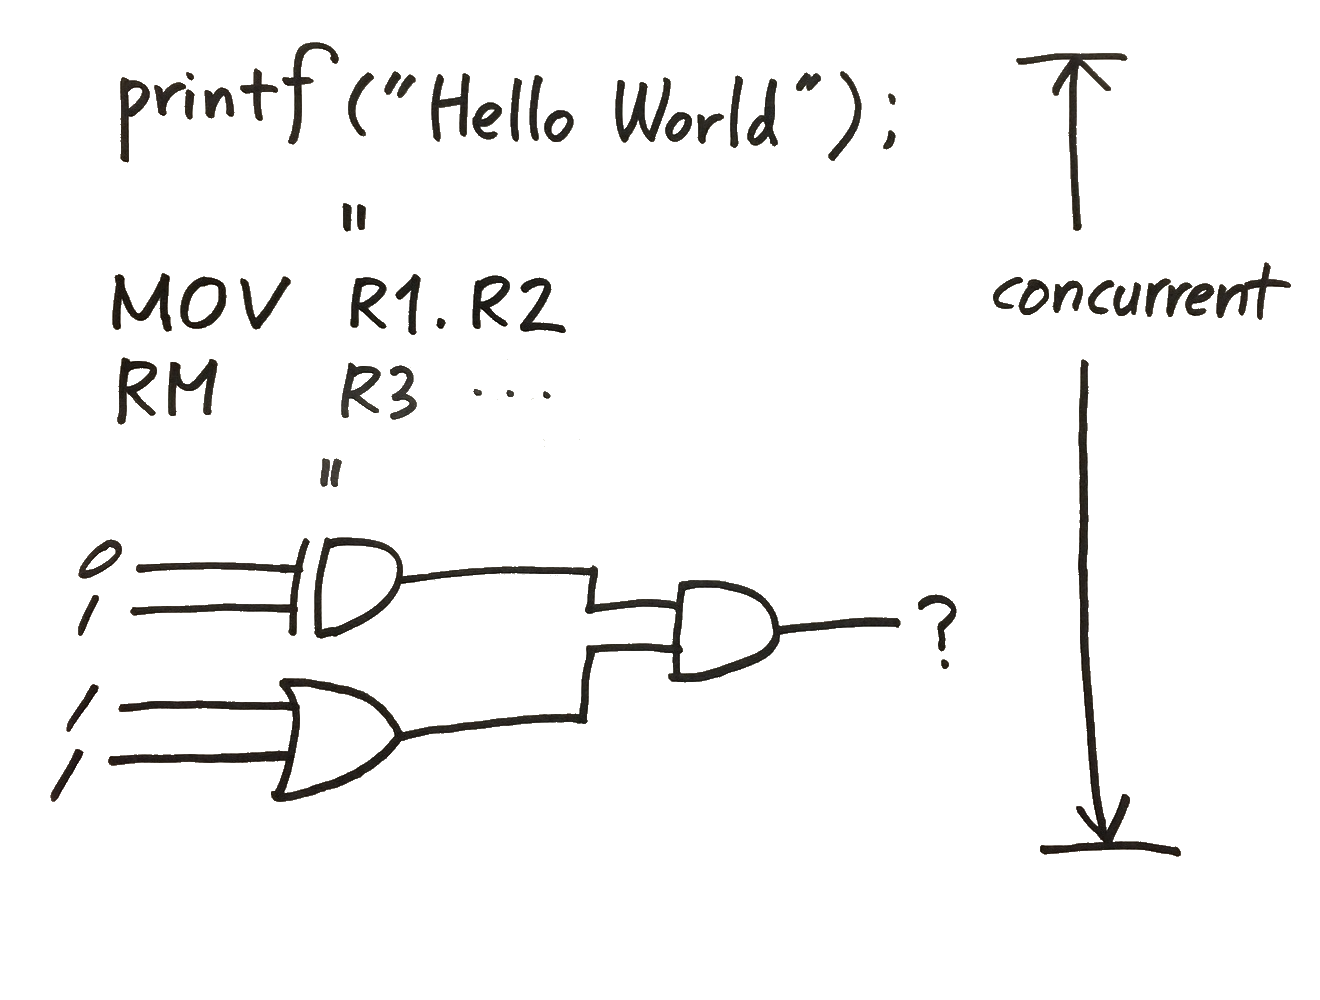 printf ("Hello World");
"
MOV R1. R2
RM R3 ...
"
concurrent
0
1
1
1
?